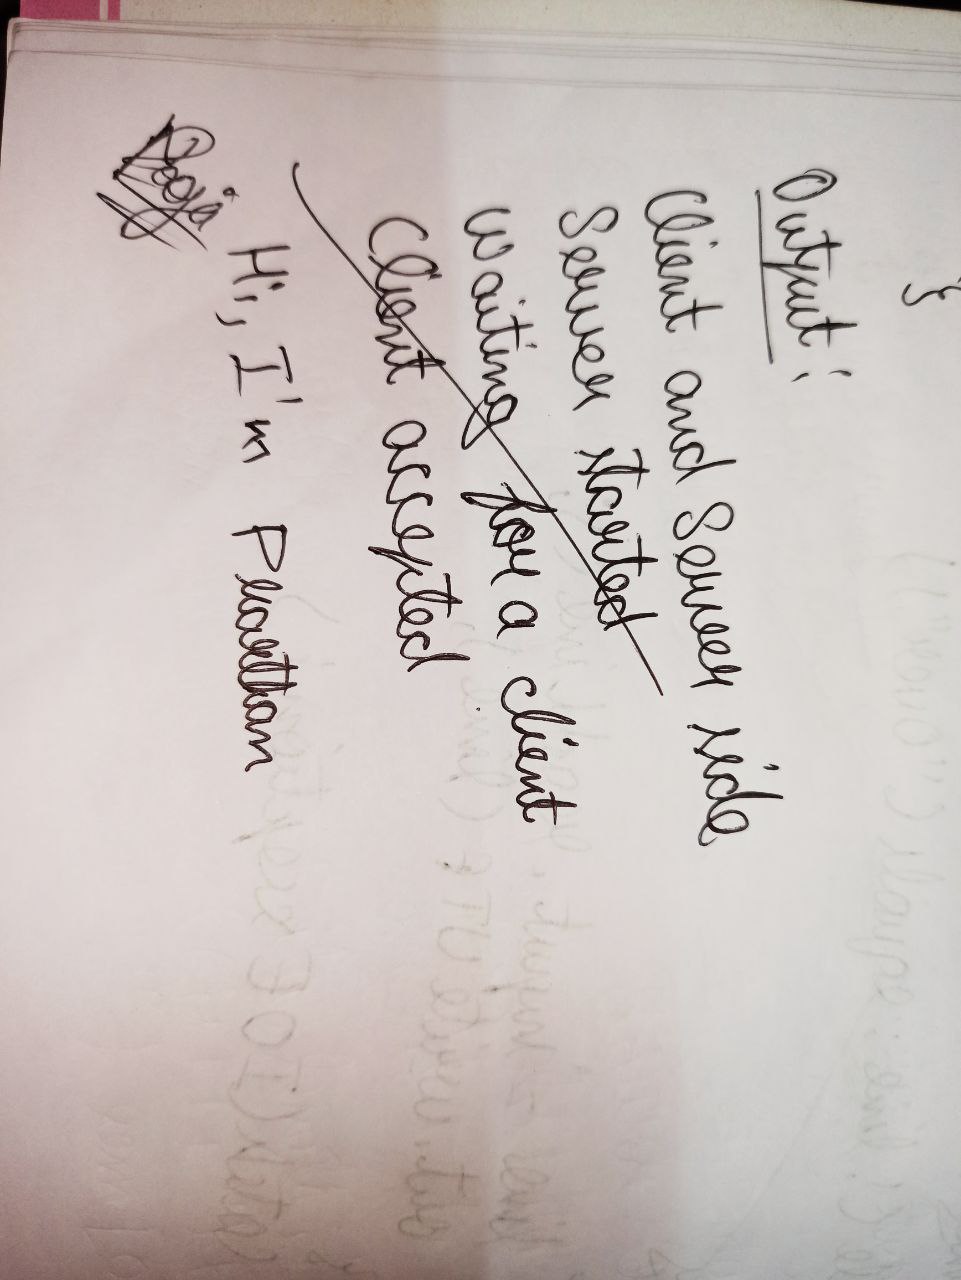 }
Output :
Client and Server side
Server started
Waiting for a client
Client accepted
Hi, I'm Pratham